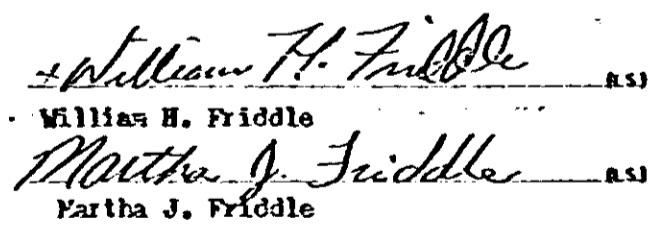 William H. Friddle (L.S.)
William H. Friddle
Martha J. Friddle (L.S.)
Martha J. Friddle